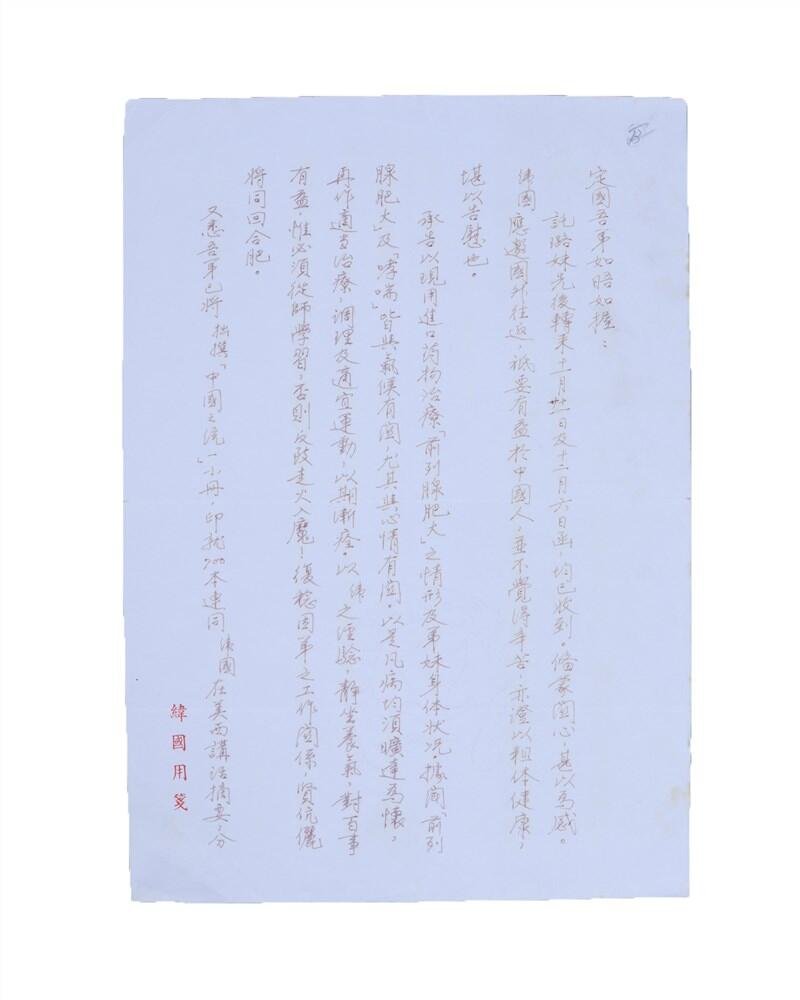 定國吾弟如晤如握：
託璐妹先後轉來十一月廿一日及十二月六日函，均已收到。備蒙關心，甚以為感。
緯國應邀國外往返，祇要有益於中國人，並不覺得辛苦，亦證以粗体健康，
堪以告慰也。
承告以現用進口药物治療「前列腺肥大」之情形及弟妹身体狀况。據聞「前列
腺肥大」及「哮喘」皆與氣候有関，尤其與心情有関。以是凡病均須曠達為懷，
再作適当治療，調理及適宜運動，以期漸痊。以緯之経驗，静坐養氣，對百事
有益，惟必須從師學習，否則反致走火入魔！復稔因弟之工作関係，賢伉儷
將同回合肥。
又悉吾弟已將拙撰「中國之流」一小冊，印就700本連同緯國在美西講話摘要，分
緯國用箋